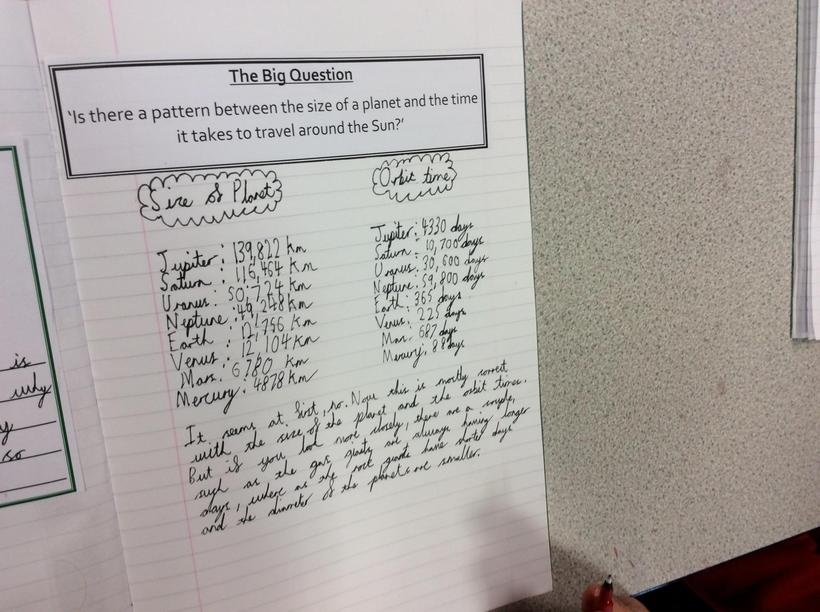 The Big Question
'Is there a pattern between the size of a planet and the time
it takes to travel around the Sun?'
Size of Planet
Jupiter: 139,822 km
Saturn: 116,464 km
Uranus: 50,724 km
Neptune: 49,248 km
Earth: 12,756 km
Venus: 12,104 km
Mars: 6780 km
Mercury: 4878 km
Orbit time
Jupiter: 4330 days
Saturn: 10,700 days
Uranus: 30,600 days
Neptune: 59,800 days
Earth: 365 days
Venus: 225 days
Mars: 687 days
Mercury: 88 days
It seems at first, so. Now this is mostly correct
with the size of the planet and the orbit times.
But if you look more closely, there are a couple,
such as the gas giants are always having longer
days, where as the rock giants have shorter days
and the diameter of the planets are smaller.
is
why
y
so